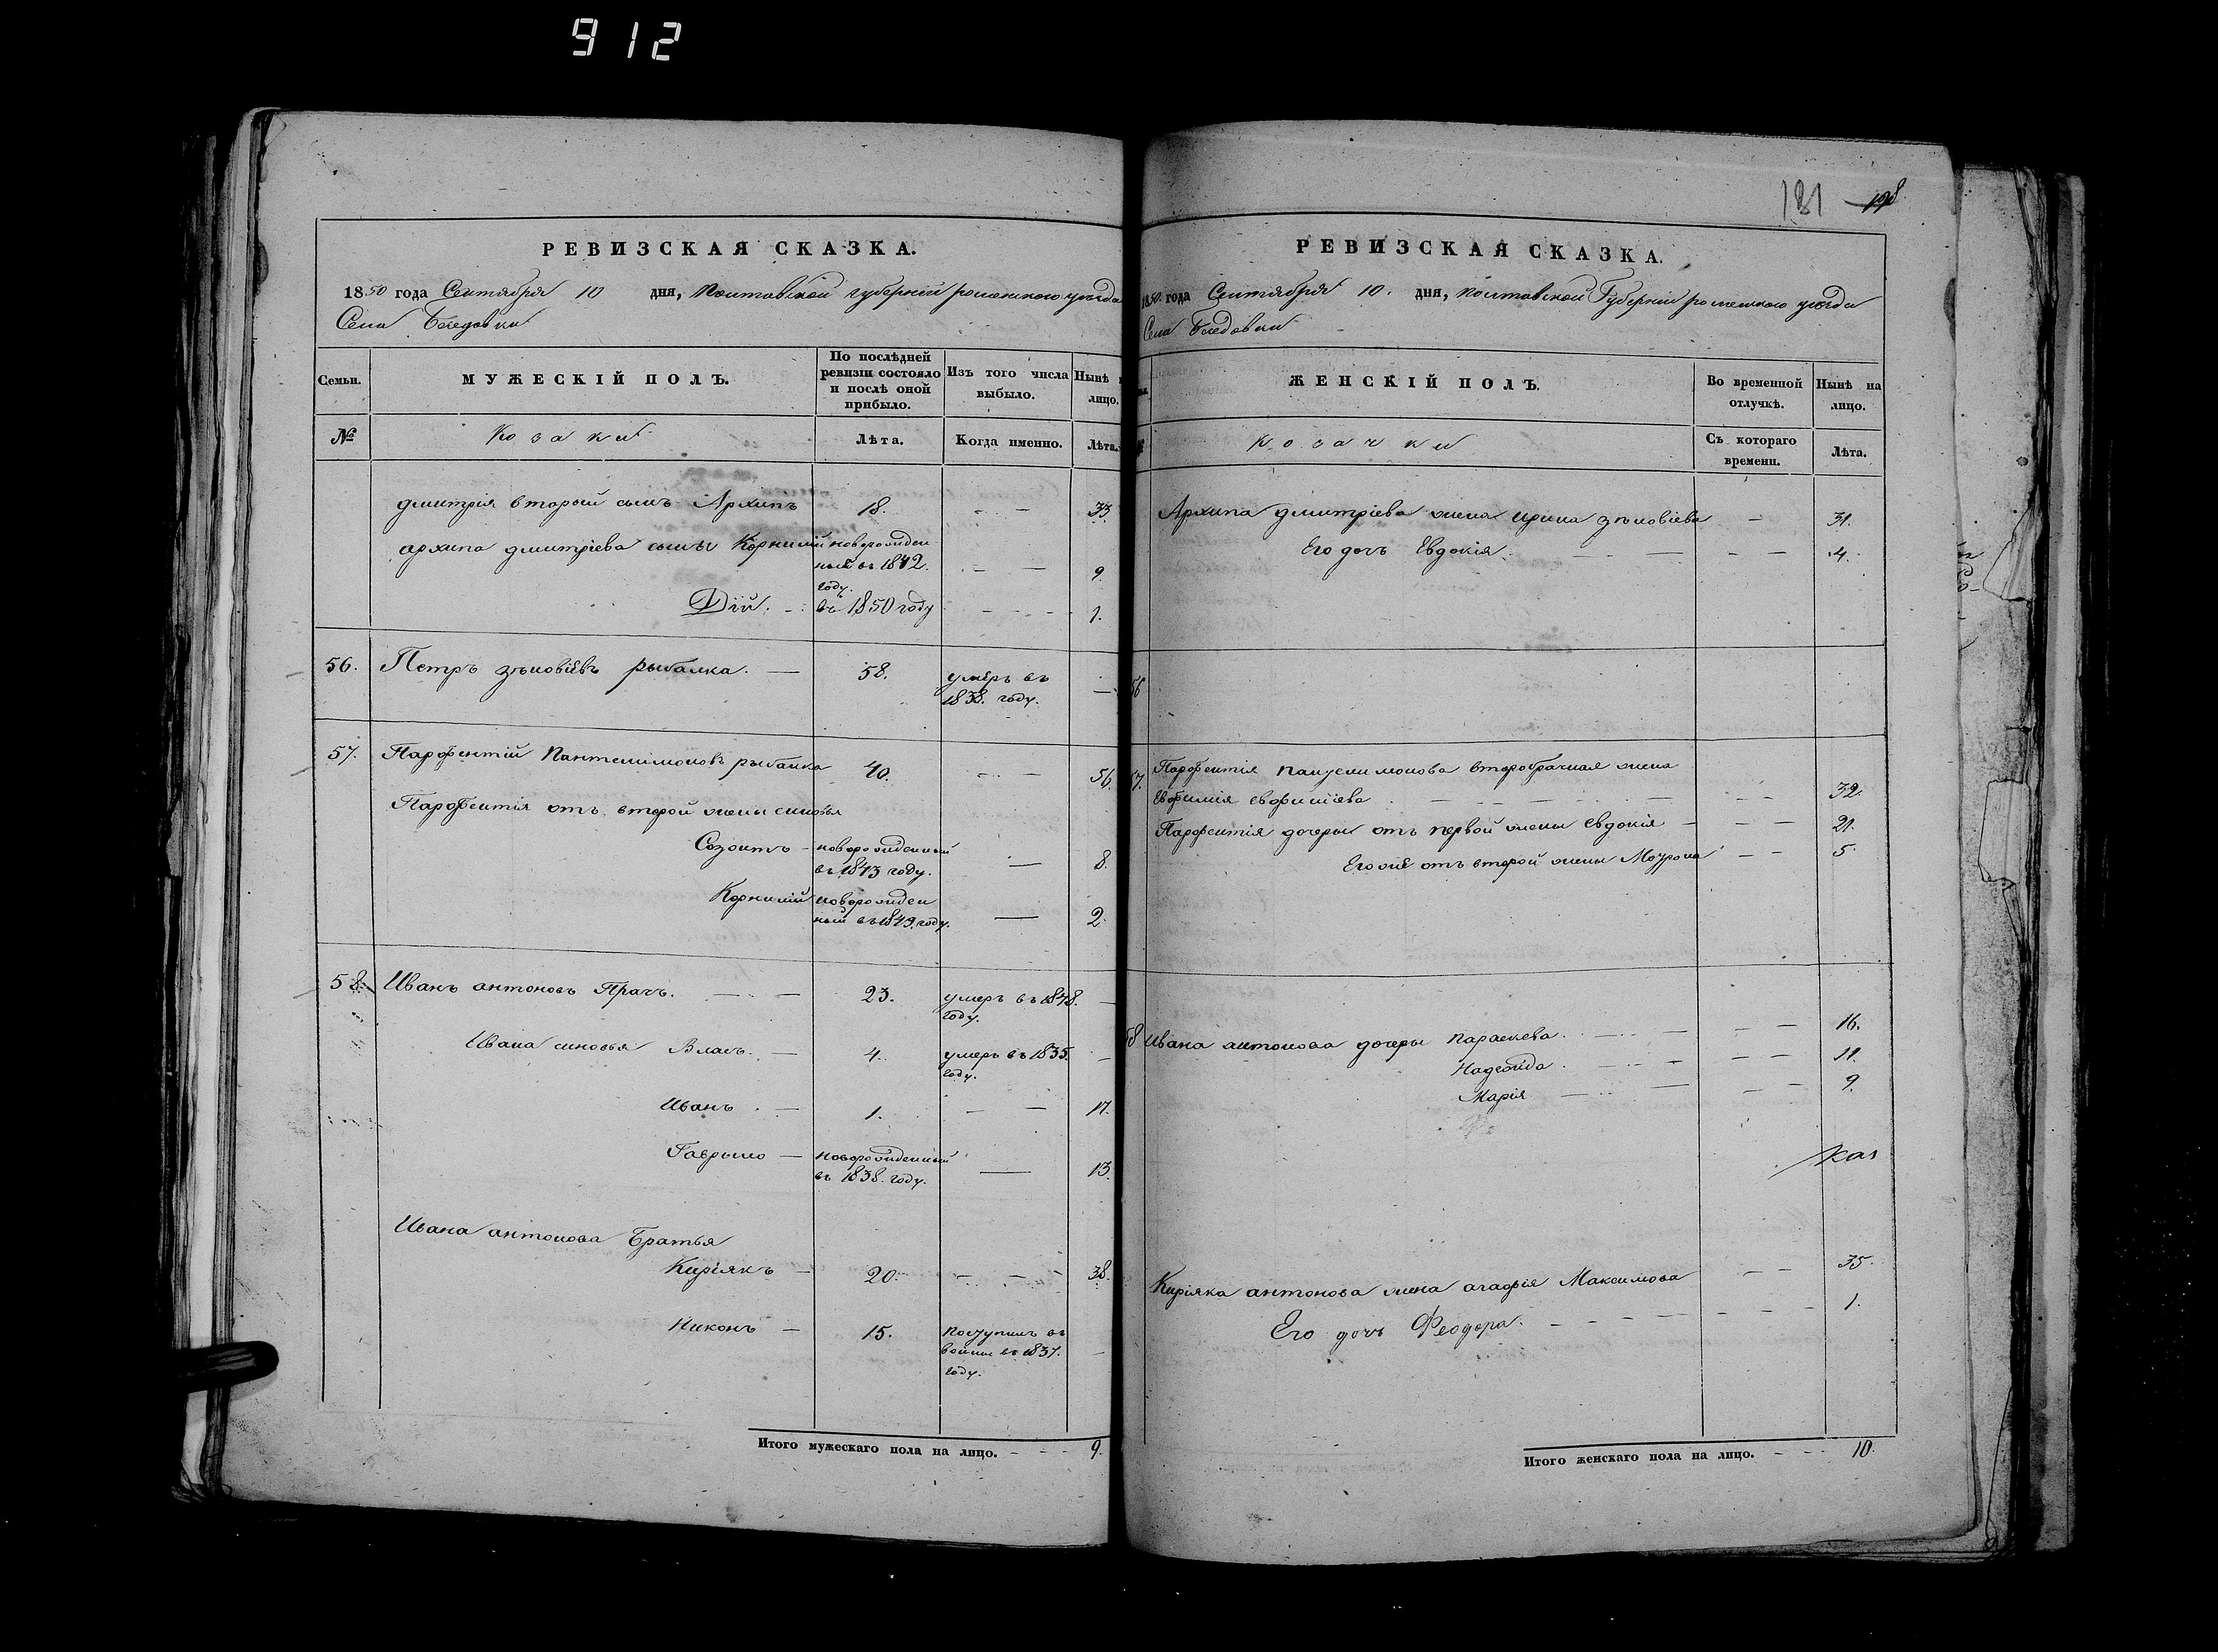 912
181 198
РЕВИЗСКАЯ СКАЗКА.
1850 года Сентября 10 дня, Полтавской губерніи роменского уезда
Села Беседовки
Семьи. МУЖЕСКІЙ ПОЛЪ. По послѣдней ревизіи состояло и послѣ оной прибыло. Изъ того числа выбыло. Нынѣ лицо.
№ Козаки Лѣта. Когда именно. Лѣта.
дмитрія вторый сынъ Архипъ 18. — — 33.
архипа дмитріева сыны Корнилій новорожден
ный въ 1842. — — 9.
году.
Дій. — въ 1850 году — — 1.
56. Петръ зѣновіевъ рыбалка. — 58. умеръ въ —
1838. году.
57. Парфентій Пантелимоновъ рыбалка 40. — — 56.
Парфентія отъ второй жены синовья
Созонтъ — новорожденный — 8.
въ 1843 году.
Корнилій новорожден — 2.
ный въ 1849. году.
58. Иванъ антоновъ Прачъ. — — 23. умеръ въ 1848. —
году.
Ивана синовья Власъ. — 4. умеръ въ 1835. —
году.
Иванъ. — 1. — — 17.
Гаврыло — новорожденный — 13.
въ 1838. году.
Ивана антонова Братья
Киріякъ — 20. — — 38.
Никонъ — 15. Поступилъ въ —
воины въ 1837.
году.
Итого мужескаго пола на лицо. — — — 9.
РЕВИЗСКАЯ СКАЗКА.
1850. года Сентября 10. дня, полтавской Губерніи роменского уезда
Села Беседовки
ЖЕНСКІЙ ПОЛЪ. Во временной отлучкѣ. Нынѣ на лицо.
козачки Съ котораго времени. Лѣта.
Архипа дмитріева жена ирина зѣновіева — 31.
Его дочь Евдокія. — — — 4.
56
57. Парфентія пантелимонова второбрачная жена
Евфимія евфиміева — — — 32.
Парфентія дочеры отъ первой жены евдокія — — — 21.
Его же отъ второй жены Мотрона — — 5.
58 Ивана антонова дочеры параскева. — — — 16.
Надежда. — — — 11.
Марія — — — 9.
Киріяка антонова жена агафія Максимова — — 35.
Его дочь Феодора. — — — 1.
Итого женскаго пола на лицо. — — — 10.